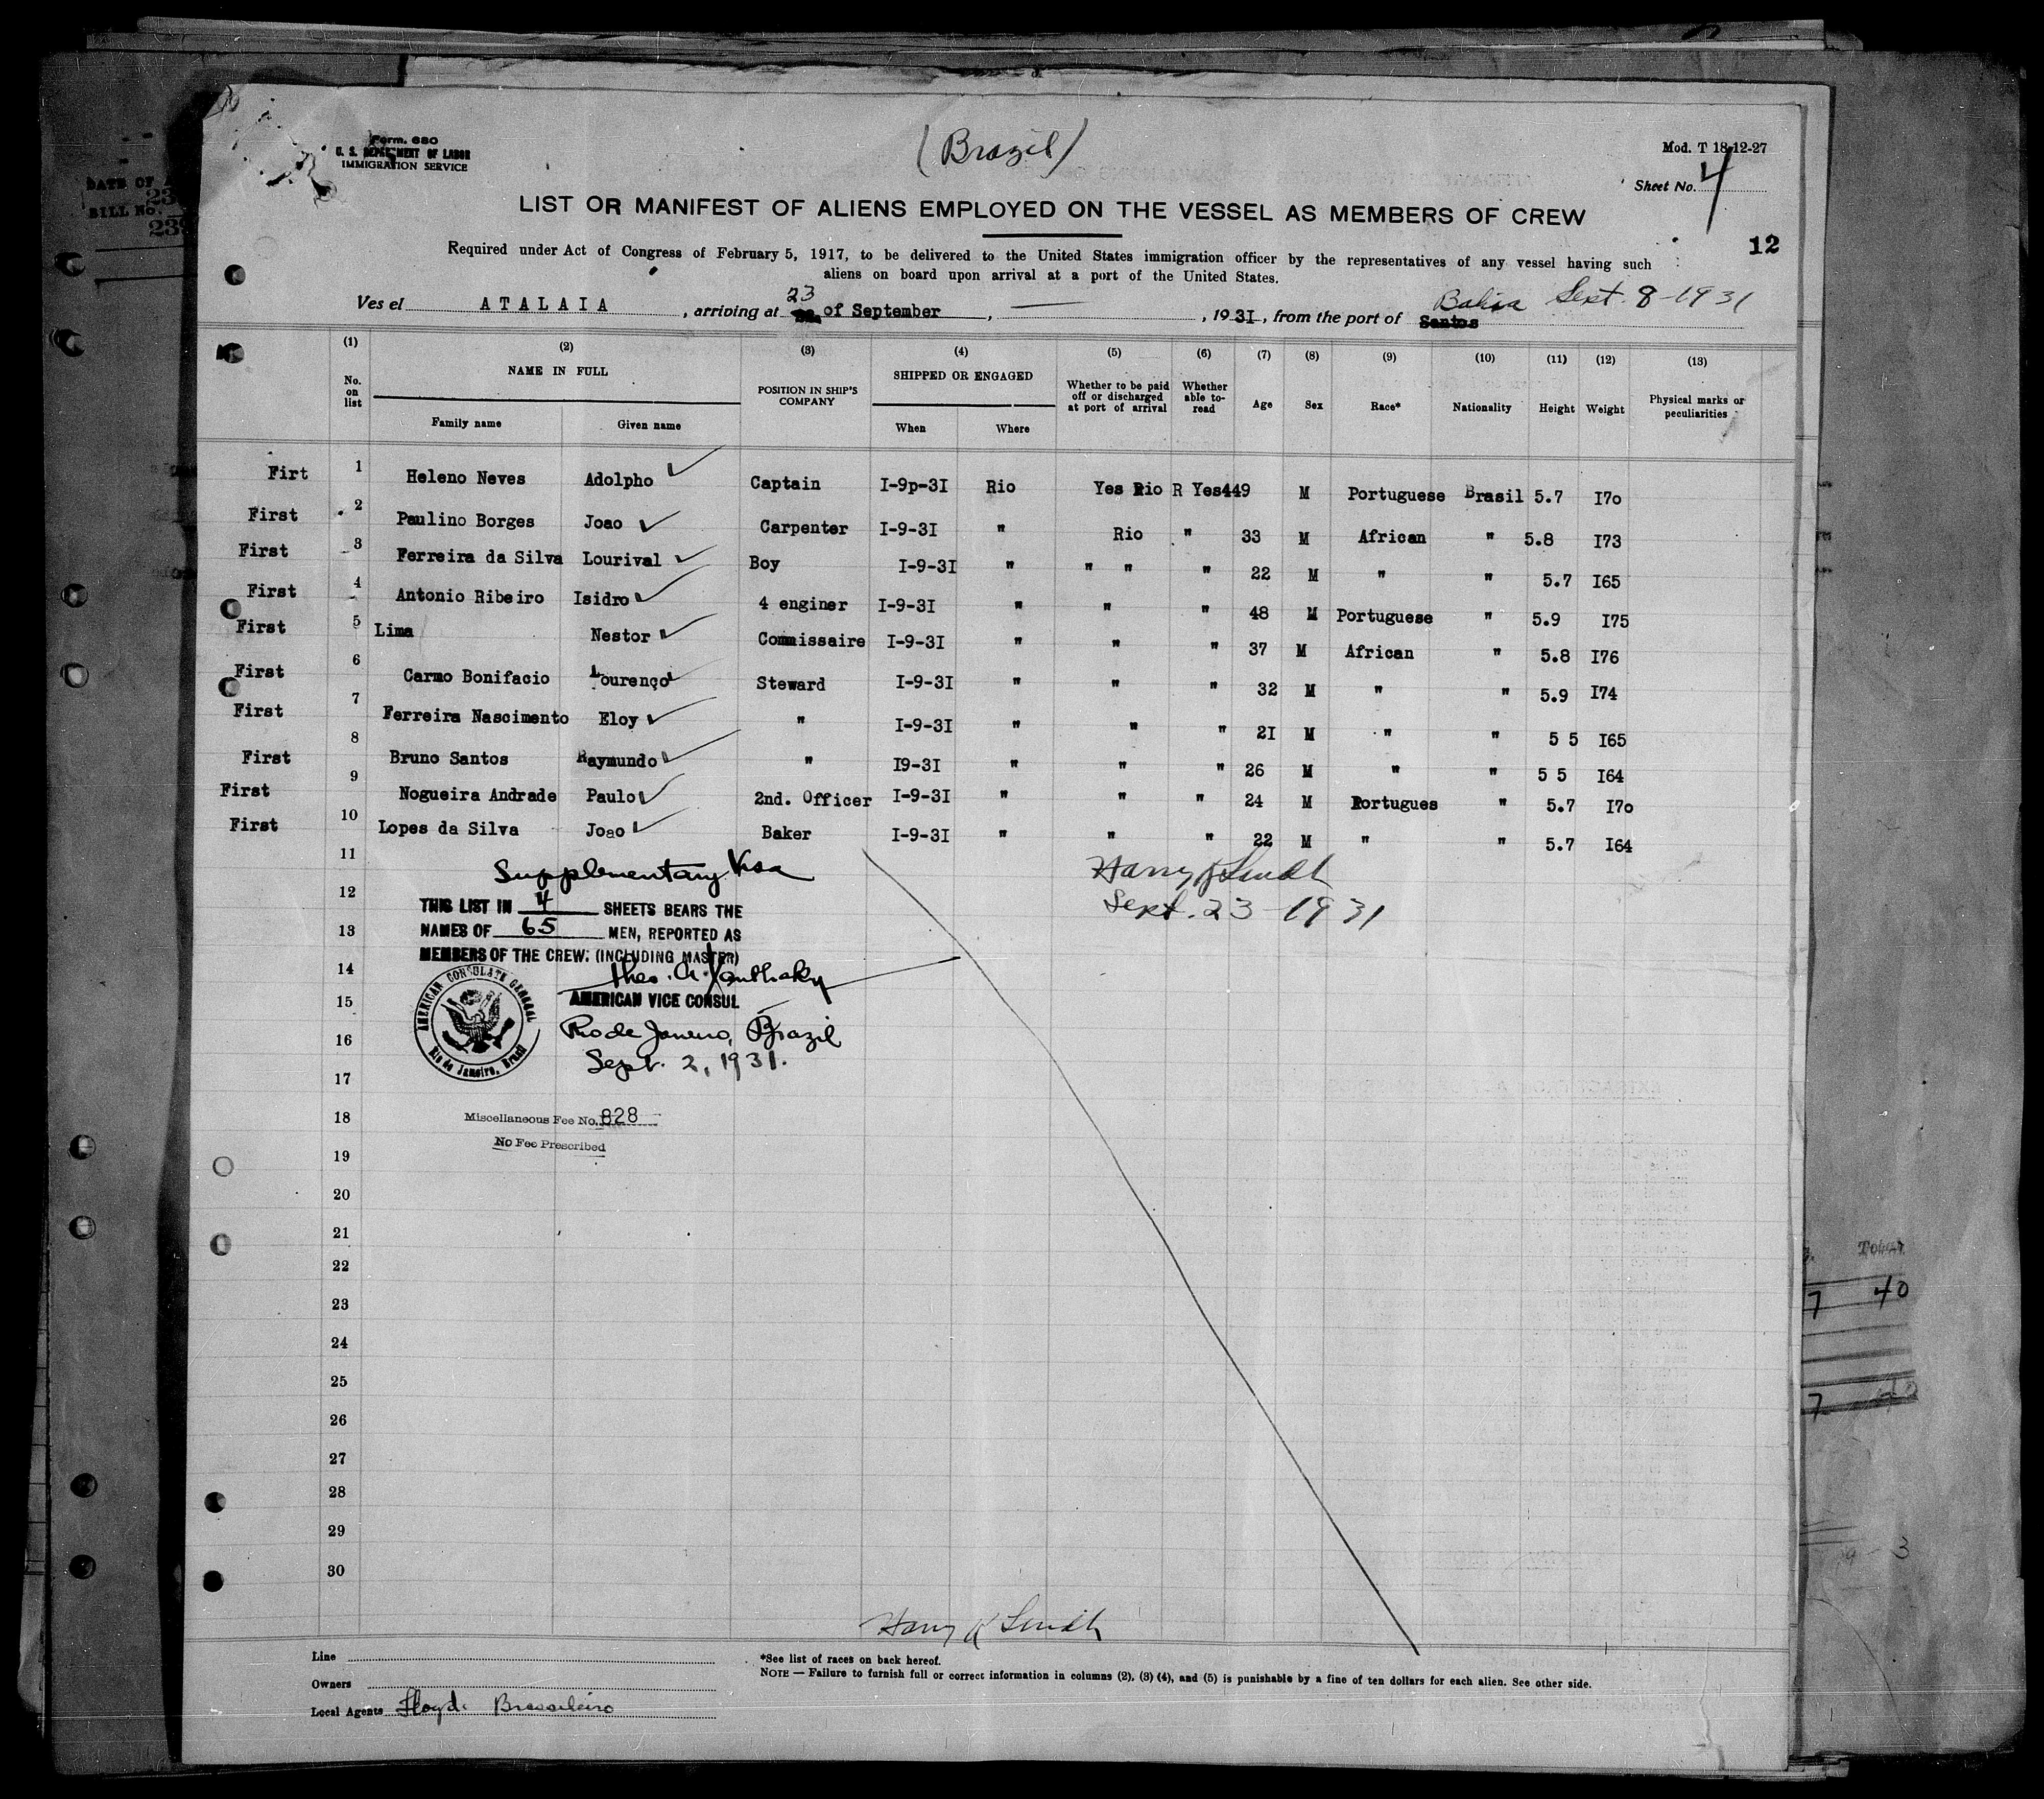 Form. 680
U. S. DEPARTMENT OF LABOR
IMMIGRATION SERVICE
(Brazil)
Mod. T 18-12-27
Sheet No. 4
LIST OR MANIFEST OF ALIENS EMPLOYED ON THE VESSEL AS MEMBERS OF CREW
12
Required under Act of Congress of February 5, 1917, to be delivered to the United States immigration officer by the representatives of any vessel having such
aliens on board upon arrival at a port of the United States.
Ves el ATALAIA, arriving at 23 of September, , 1931, from the port of Santos Bahia Sept. 8-1931
(1) (2) (3) (4) (5) (6) (7) (8) (9) (10) (11) (12) (13)
No. on list NAME IN FULL Family name Given name POSITION IN SHIP'S COMPANY SHIPPED OR ENGAGED When Where Whether to be paid off or discharged at port of arrival Whether able to read Age Sex Race* Nationality Height Weight Physical marks or peculiarities
Firt 1 Heleno Neves Adolpho Captain I-9p-3I Rio Yes Rio R Yes449 M Portuguese Brasil 5.7 I7o
First 2 Paulino Borges Joao Carpenter I-9-3I " Rio " 33 M African " 5.8 I73
First 3 Ferreira da Silva Lourival Boy I-9-3I " " " " 22 M " " 5.7 I65
First 4 Antonio Ribeiro Isidro 4 enginer I-9-3I " " " 48 M Portuguese " 5.9 I75
First 5 Lima Nestor Commissaire I-9-3I " " " 37 M African " 5.8 I76
First 6 Carmo Bonifacio Lourenço Steward I-9-3I " " " 32 M " " 5.9 I74
First 7 Ferreira Nascimento Eloy " I-9-3I " " " 2I M " " 5 5 I65
First 8 Bruno Santos Raymundo " I9-3I " " " 26 M " " 5 5 I64
First 9 Nogueira Andrade Paulo 2nd. Officer I-9-3I " " " 24 M Portugues " 5.7 I7o
First 10 Lopes da Silva Joao Baker I-9-3I " " " 22 M " " 5.7 I64
11
Supplementary Visa
Harry K Smith
12
THIS LIST IN 4 SHEETS BEARS THE
Sept. 23-1931
13
NAMES OF 65 MEN, REPORTED AS
MEMBERS OF THE CREW. (INCLUDING MASTER)
14
Theo. A. Xanthaky
15
AMERICAN VICE CONSUL
AMERICAN CONSULATE GENERAL
Rio de Janeiro, Brasil
16
Rio de Janeiro, Brazil
Sept. 2, 1931.
17
18
Miscellaneous Fee No. 828
No Fee Prescribed
19
20
21
22
23
24
25
26
27
28
29
30
Harry K Smith
Line
Owners
Local Agents Lloyd Brasileiro
*See list of races on back hereof.
NOTE — Failure to furnish full or correct information in columns (2), (3) (4), and (5) is punishable by a fine of ten dollars for each alien. See other side.
DATE OF
BILL No.
Total
7 40
7 40
3